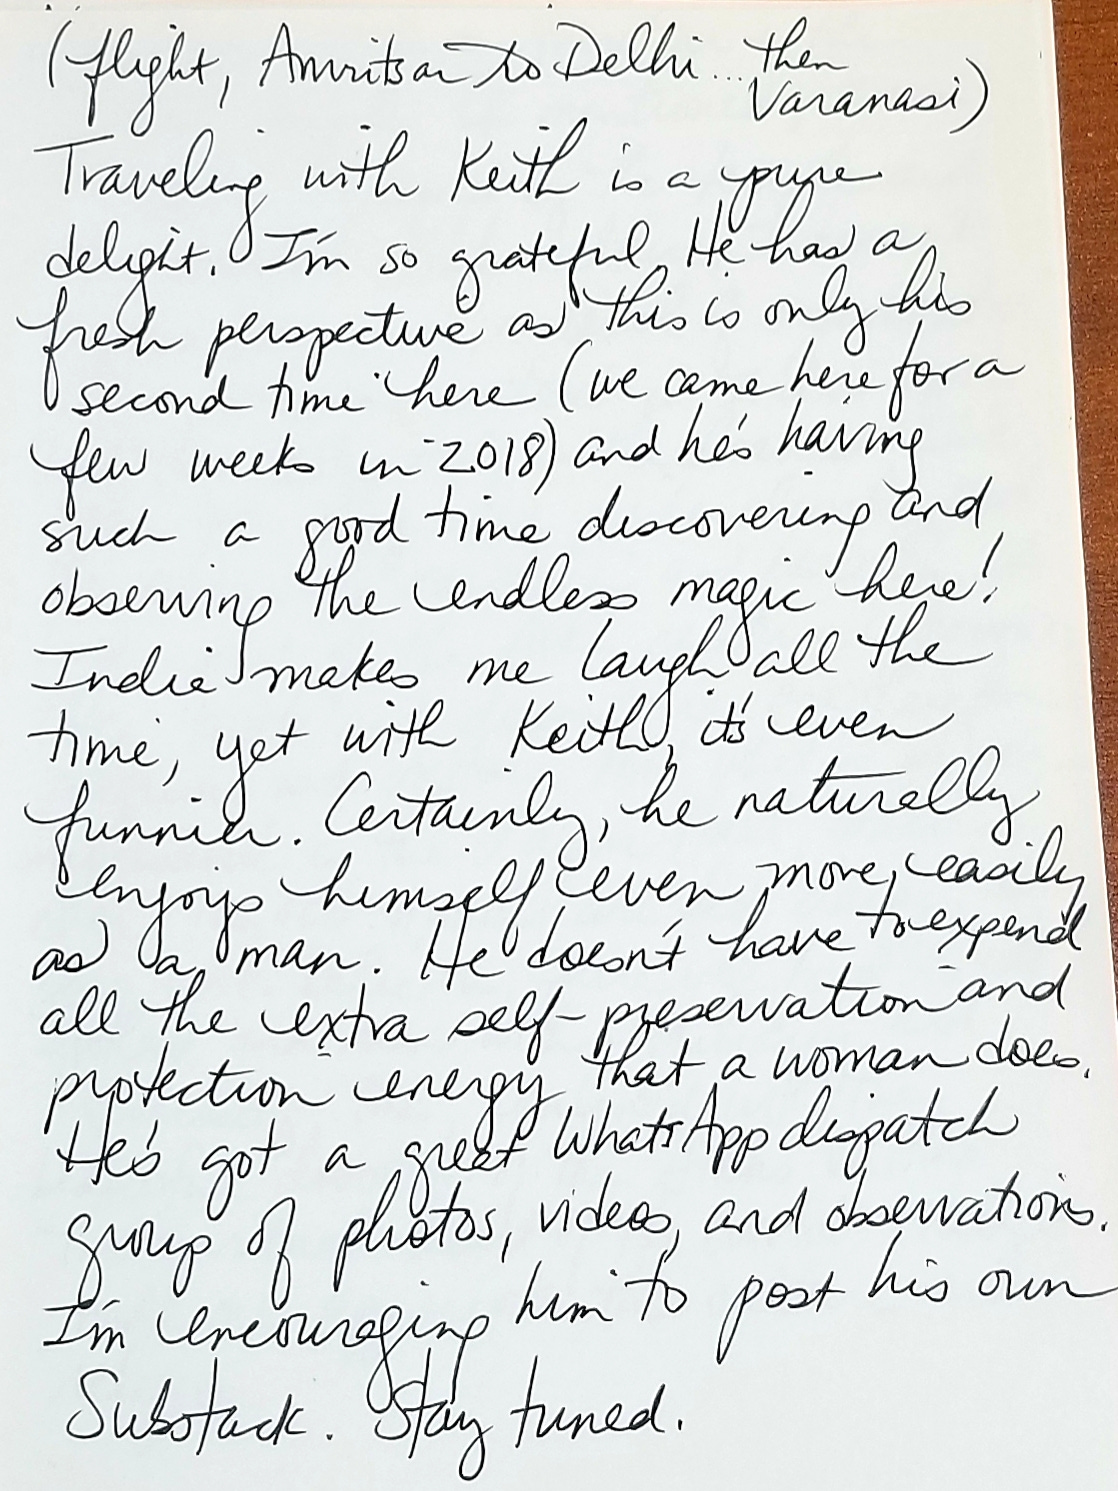 (flight, Amritsar to Delhi... then
Varanasi)
Traveling with Keith is a pure
delight. I'm so grateful. He has a
fresh perspective as this is only his
second time here (we came here for a
few weeks in 2018) and he's having
such a good time discovering and
observing the endless magic here!
India makes me laugh all the
time, yet with Keith, it's even
funnier. Certainly, he naturally
enjoys himself even more easily
as a man. He doesn't have to expend
all the extra self-preservation and
protection energy that a woman does.
He's got a great WhatsApp dispatch
group of photos, videos, and observations.
I'm encouraging him to post his own
Substack. Stay tuned.